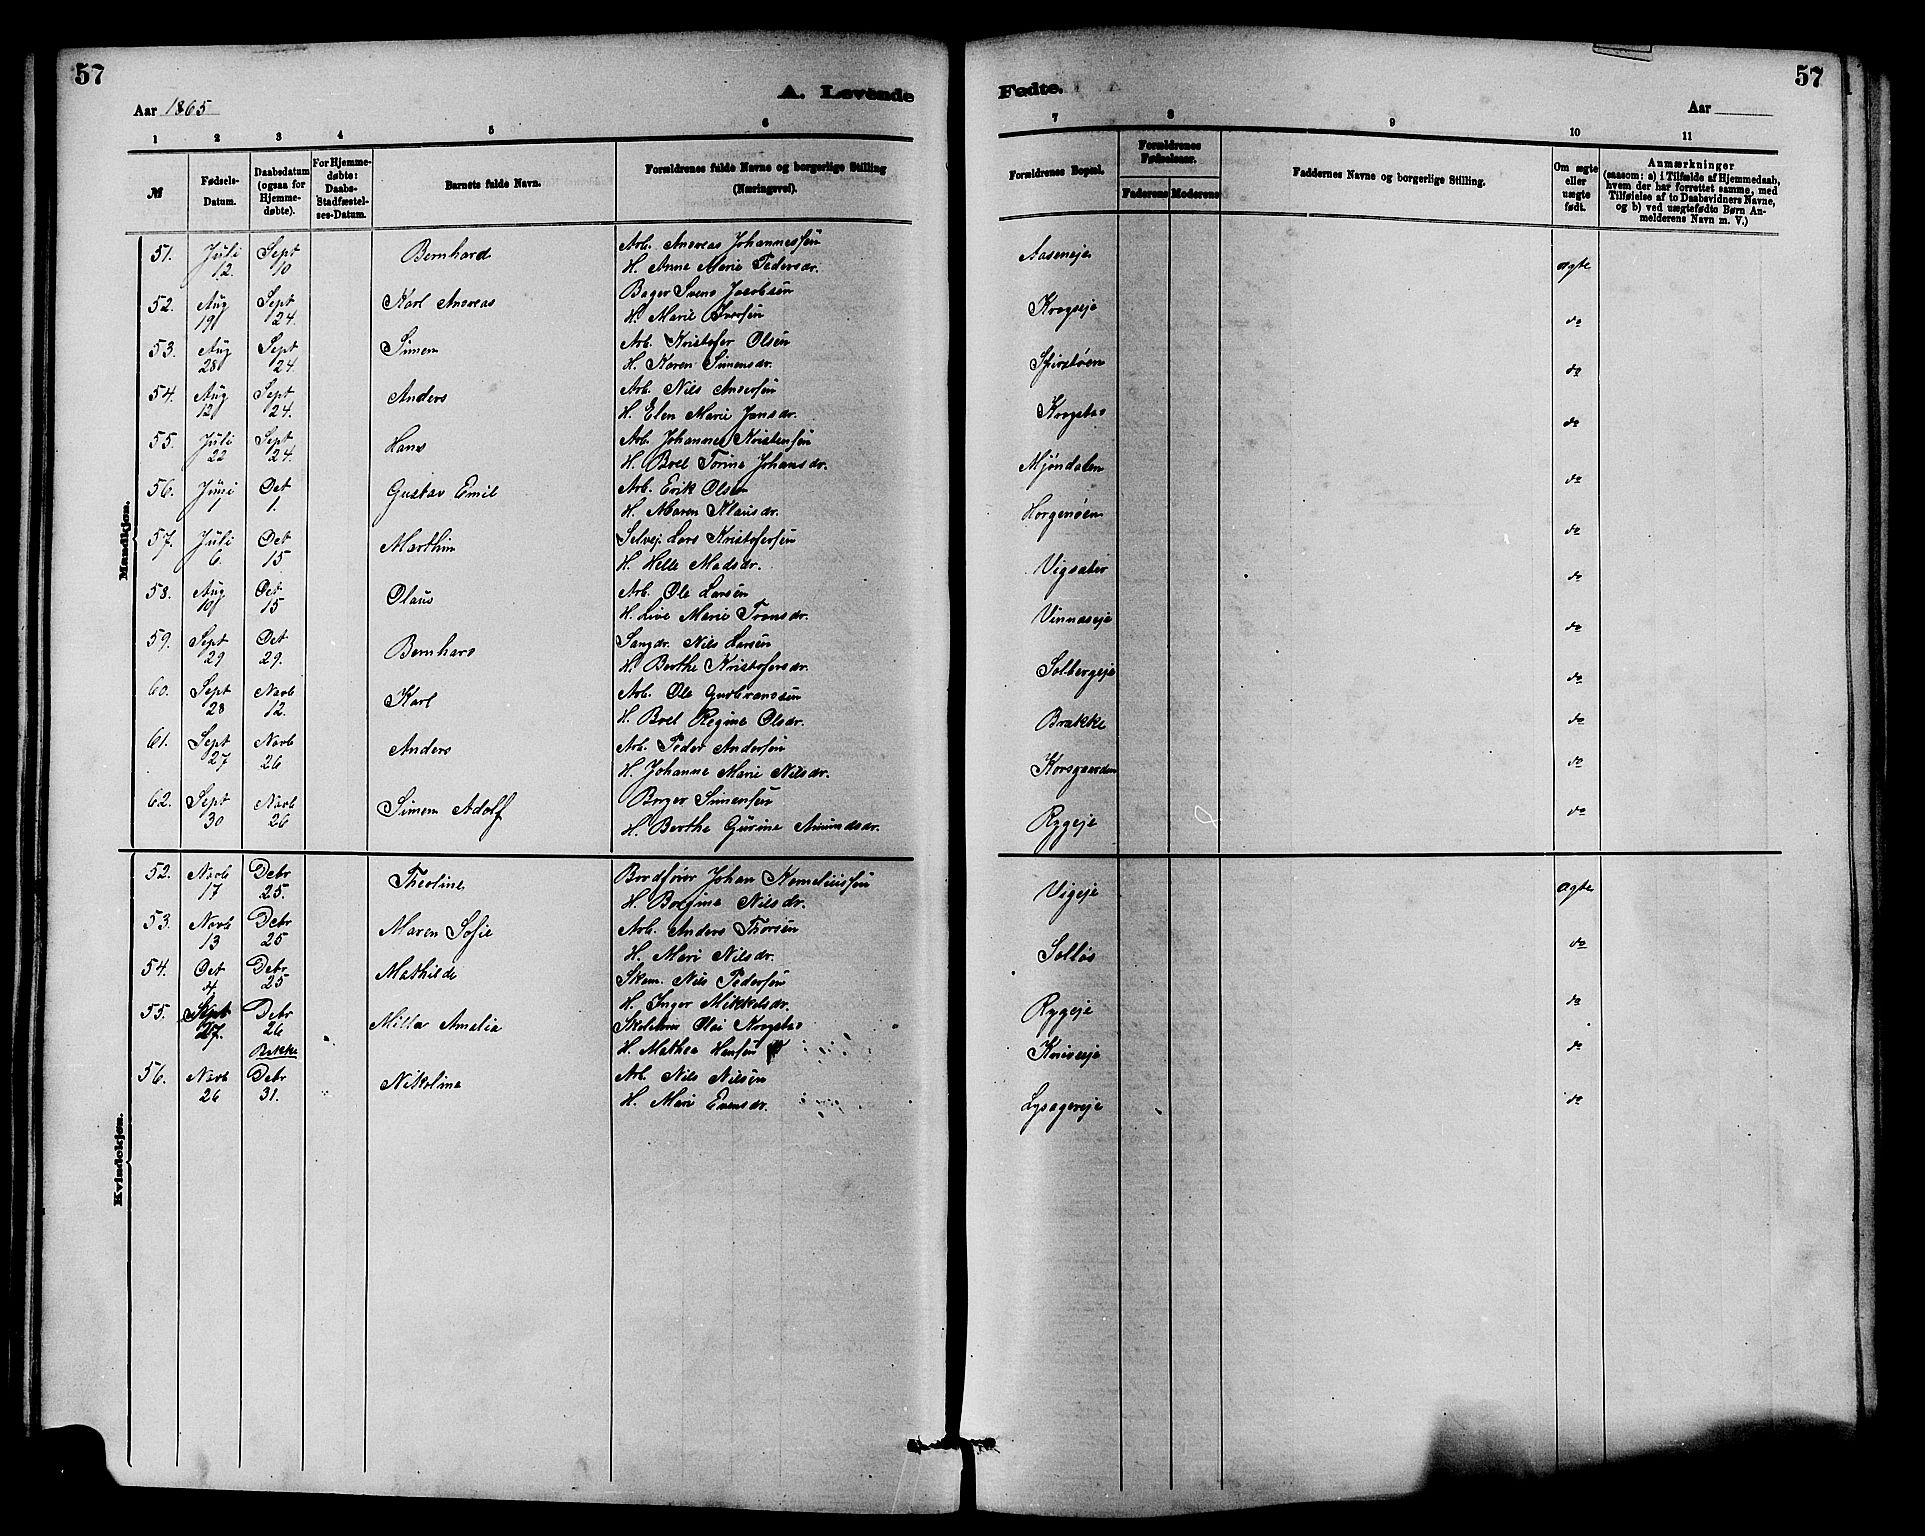 57
57
Aar 1865
A. Levende
Fødte.
Aar
1 2 3 4 5 6 7 8 9 10 11
№
Fødsels-Datum.
Daabsdatum (ogsaa for Hjemmedøbte).
For Hjemmedøbte: Daabs-Stadfæstelses-Datum.
Barnets fulde Navn.
Forældrenes fulde Navne og borgerlige Stilling (Næringsvei).
Forældrenes Bopæl.
Forældrenes Fødselsaar.
Faderens
Moderens
Faddernes Navne og borgerlige Stilling.
Om ægte eller uægte født.
Anmærkninger
(saasom: a) i Tilfælde af Hjemmedaab, hvem der har forrettet samme, med Tilføielse af to Daabsvidners Navne, og b) ved uægtefødte Børn Anmelderens Navn m. V.)
Mandkjøn.
51. Juli 12. Sept 10 Bernhard Arb. Andreas Johannessen Aaseneje ægte
H. Anne Marie Pedersdr.
52. Aug 19 Sept 24. Karl Andreas Bager Svend Jacobsen Krogseje do
H. Marie Iversen
53. Aug 28 Sept 24. Simen Arb. Kristofer Olsen do
H. Karen Simensdr.
54. Aug 12 Sept 24. Anders Arb. Nils Andersen Krogstad do
H. Elen Marie Jansdr.
55. Juli 22 Sept 24. Hans Arb. Johannes Kristensen Mjøndalen do
H. Boel Torine Johansdr.
56. Juni Oct 1. Gustav Emil Arb. Erik Olsen Horgenøen do
H. Maren Klausdr.
57. Juli 6. Oct 15 Marthin Selvej. Lars Kristofersen Vigsæter do
H. Helle Madsdr.
58. Aug 10 Oct 15 Olaus Arb. Ole Larsen Vinnaseje do
H. Live Marie Tronsdr.
59. Sept 29 Oct 29. Bernhard Nils Larsen Solbergeje do
H. Berthe Kristofersdr.
60. Sept 28 Novb 12. Karl Arb. Ole Gudbrandsen Brække do
H. Boel Regine Olsdr.
61. Sept 27 Novb 26 Anders Arb. Peder Andersen Korsgaarden do
H. Johanne Marie Nilsdr.
62. Sept 30 Novb 26 Simen Adolf Simensen Rygeje do
H. Berthe Gurine Amundsdr.
Kvindekjøn.
52. Novb 17 Debr 25. Theoline Bordfører Johan Korneliussen Vigeje ægte
H. Nilsdr.
53. Novb 13 Debr 25 Maren Sofie Arb. Anders Thorsen Solløs do
H. Mari Nilsdr.
54. Oct 4. Debr 25 Mathilde Skom. Nils Pedersen Rygeje do
H. Inger Mikkelsdr.
55. Sept 27. Debr 26 Bakke Milla Amalia Olai Krogstad do
H. Mathea Hansen
56. Novb 26 Debr 31. Nikoline Arb. Nils Nilsen Lysagereje do
H. Mari Evensdr.